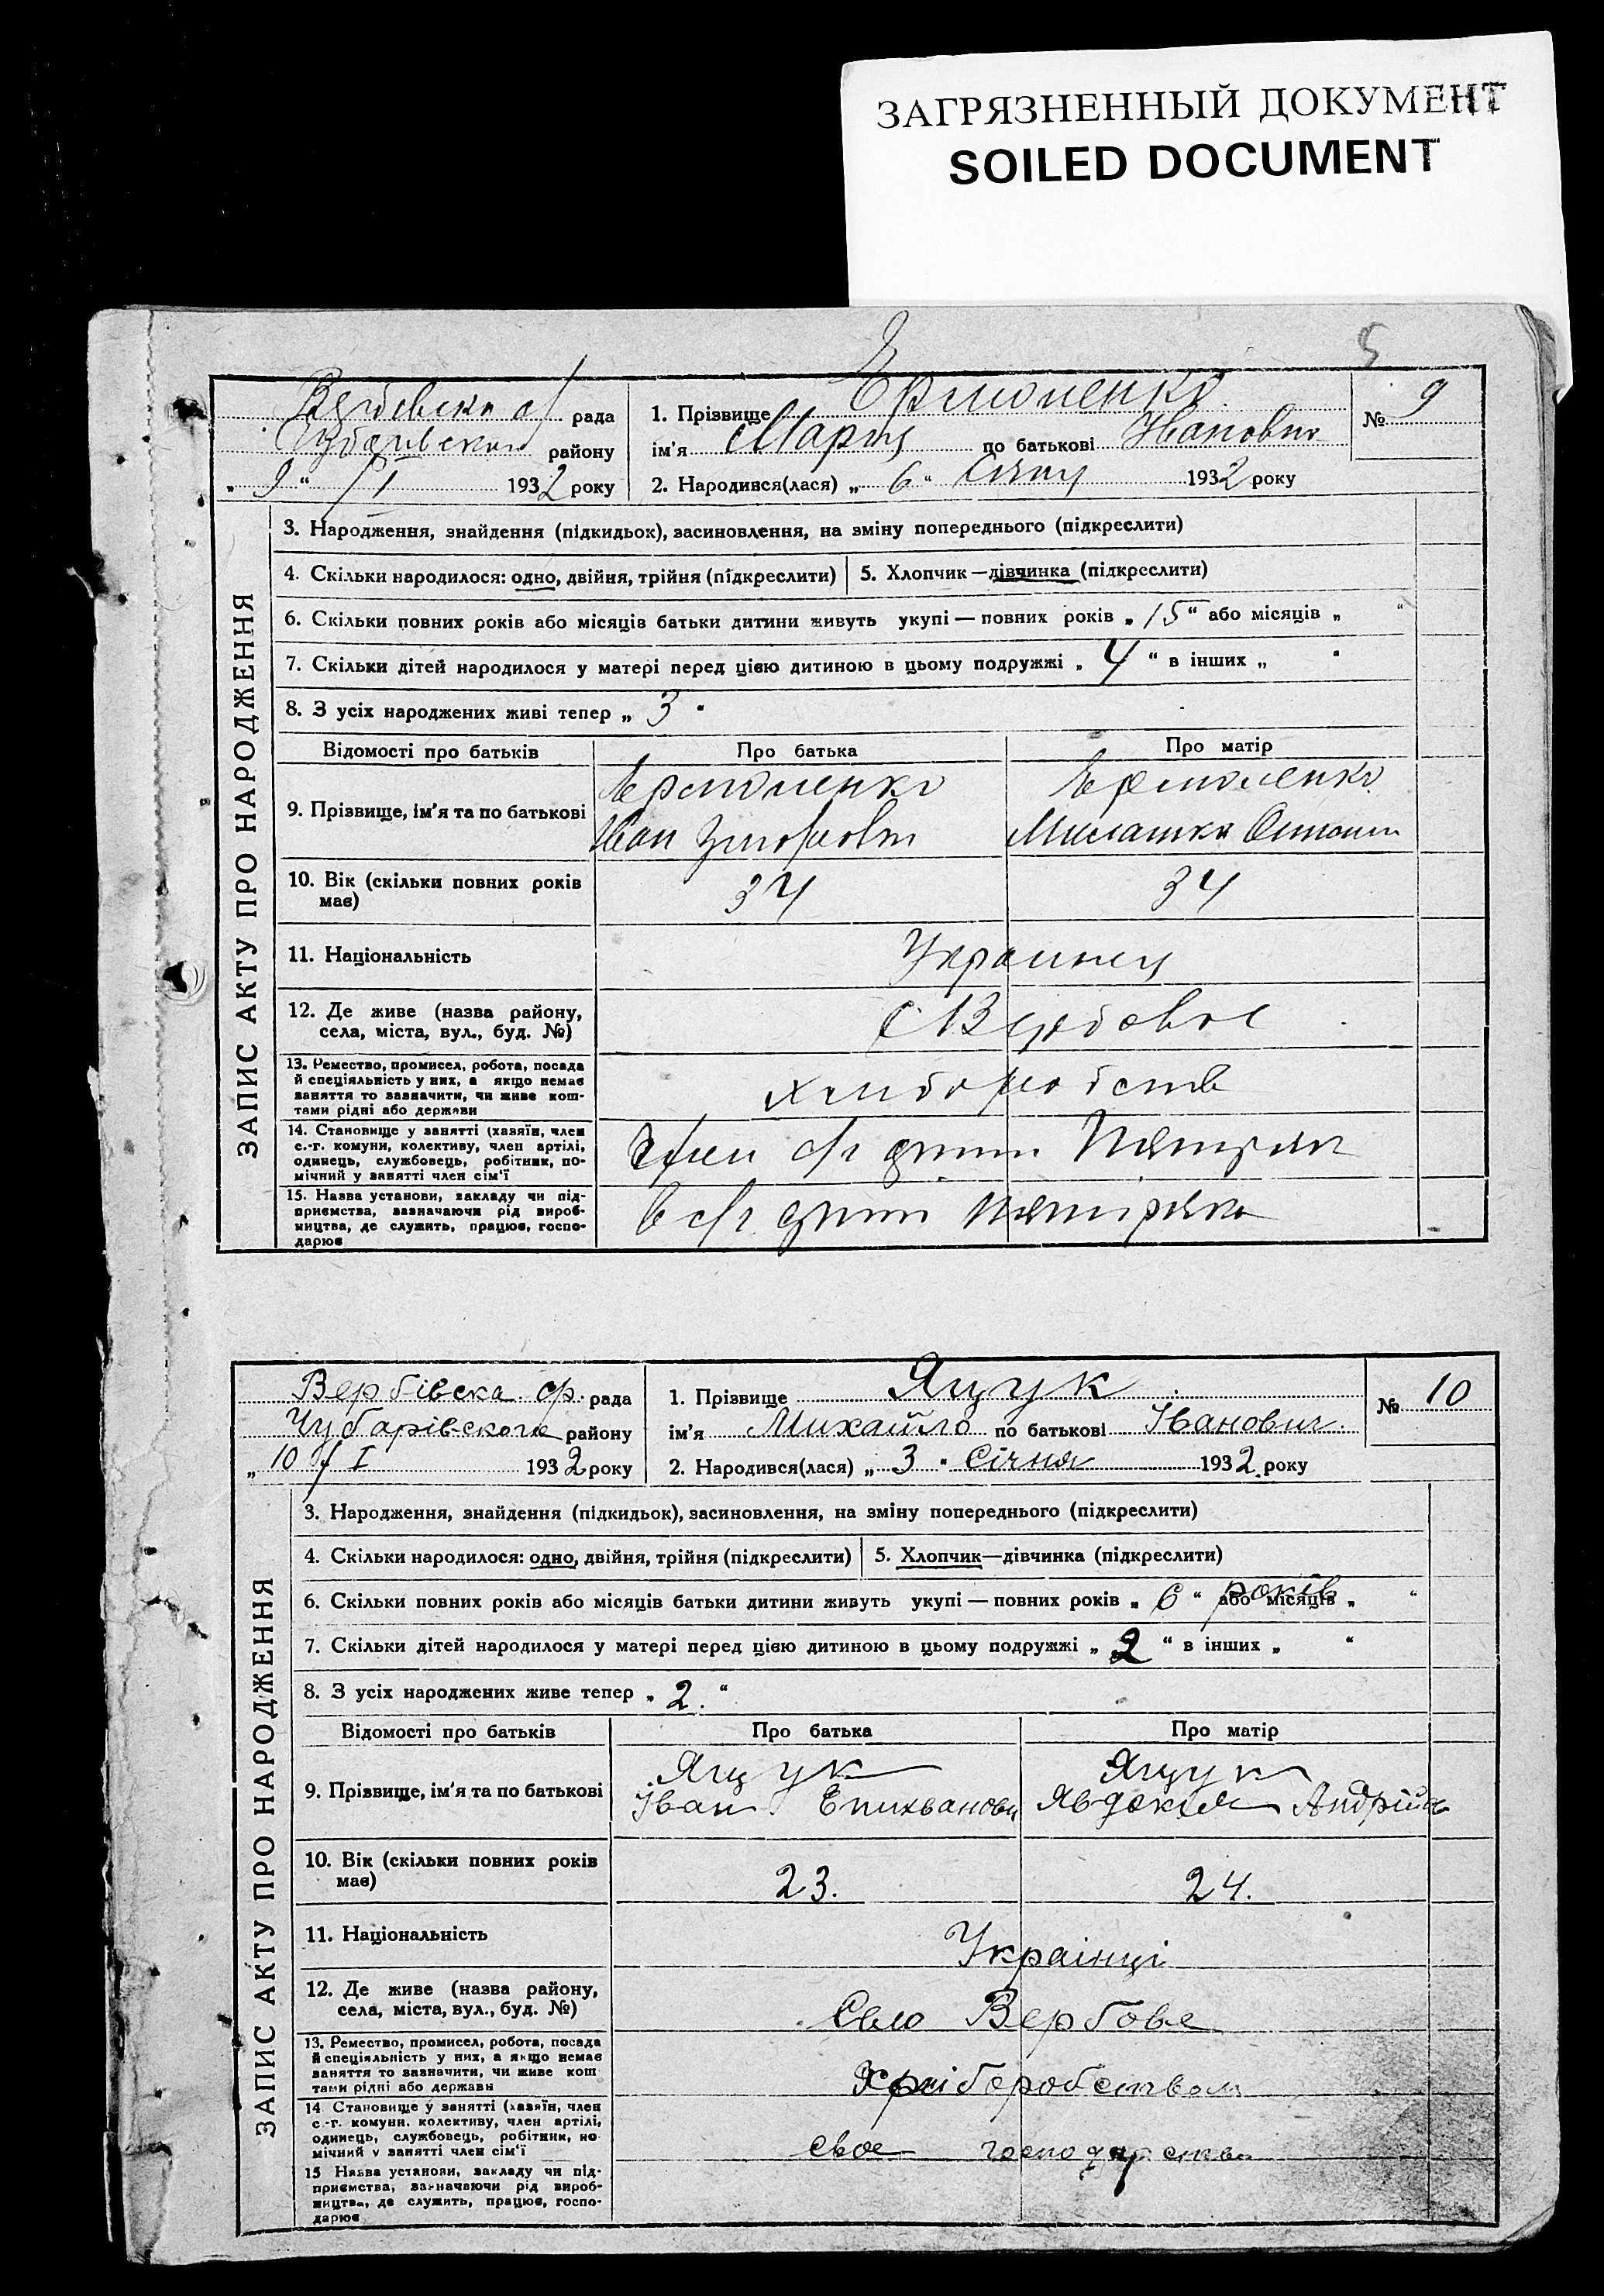 ЗАГРЯЗНЕННЫЙ ДОКУМЕНТ
SOILED DOCUMENT
5
рада
району
„ 9 “ / I 1932 року
1. Прізвище Ермоленко
ім'я Мария по батькові Ивановна
2. Народився(лася) „ 6 “ 1932 року
№ 9
ЗАПИС АКТУ ПРО НАРОДЖЕННЯ
3. Народження, знайдення (підкидьок), засиновлення, на зміну попереднього (підкреслити)
4. Скільки народилося: одно, двійня, трійня (підкреслити) 5. Хлопчик—дівчинка (підкреслити)
6. Скільки повних років або місяців батьки дитини живуть укупі — повних років „ 15 “ або місяців „ “
7. Скільки дітей народилося у матері перед цією дитиною в цьому подружжі „ 4 “ в інших „ “
8. З усіх народжених живі тепер „ 3 “
Відомості про батьків Про батька Про матір
9. Прізвище, ім'я та по батькові
Ермоленко Ермоленко
Иван
10. Вік (скільки повних років має) 34 34
11. Національність
12. Де живе (назва району, села, міста, вул., буд. №)
с Вербовое
13. Ремество, промисел, робота, посада
й спеціяльність у них, а якщо немає
заняття то зазначити, чи живе кош-
тами рідні або держави
14. Становище у занятті (хазяїн, член
с.-г. комуни, колективу, член артілі,
одинець, службовець, робітник, по-
мічний у занятті член сім'ї
15. Назва установи, закладу чи під-
приємства, зазначаючи рід вироб-
ництва, де служить, працює, госпо-
дарює
Вербівска ср. рада
Чубарівского району
„ 10 / I 1932 року
1. Прізвище Ящук
ім'я Михайло по батькові Іванович
2. Народився(лася) „ 3 “ Січня 1932 року
№ 10
ЗАПИС АКТУ ПРО НАРОДЖЕННЯ
3. Народження, знайдення (підкидьок), засиновлення, на зміну попереднього (підкреслити)
4. Скільки народилося: одно, двійня, трійня (підкреслити) 5. Хлопчик—дівчинка (підкреслити)
6. Скільки повних років або місяців батьки дитини живуть укупі — повних років „ 6 “ років або місяців „ “
7. Скільки дітей народилося у матері перед цією дитиною в цьому подружжі „ 2 “ в інших „ “
8. З усіх народжених живе тепер „ 2. “
Відомості про батьків Про батька Про матір
9. Прізвище, ім'я та по батькові
Ящук Ящук
Іван Явдокия Андрій
10. Вік (скільки повних років має) 23. 24.
11. Національність Украінці
12. Де живе (назва району, села, міста, вул., буд. №)
Село Вербове
13. Ремество, промисел, робота, посада
й спеціяльність у них, а якщо немає
заняття то зазначити, чи живе кош
тами рідні або держави
Хліборобством
14 Становище у занятті (хазяїн, член
с.-г. комуни, колективу, член артілі,
одинець, службовець, робітник, по
мічний у занятті член сім'ї
свое господарство
15 Назва установи, закладу чи під-
приємства, зазначаючи рід вироб-
ництва, де служить, працює, госпо-
дарює